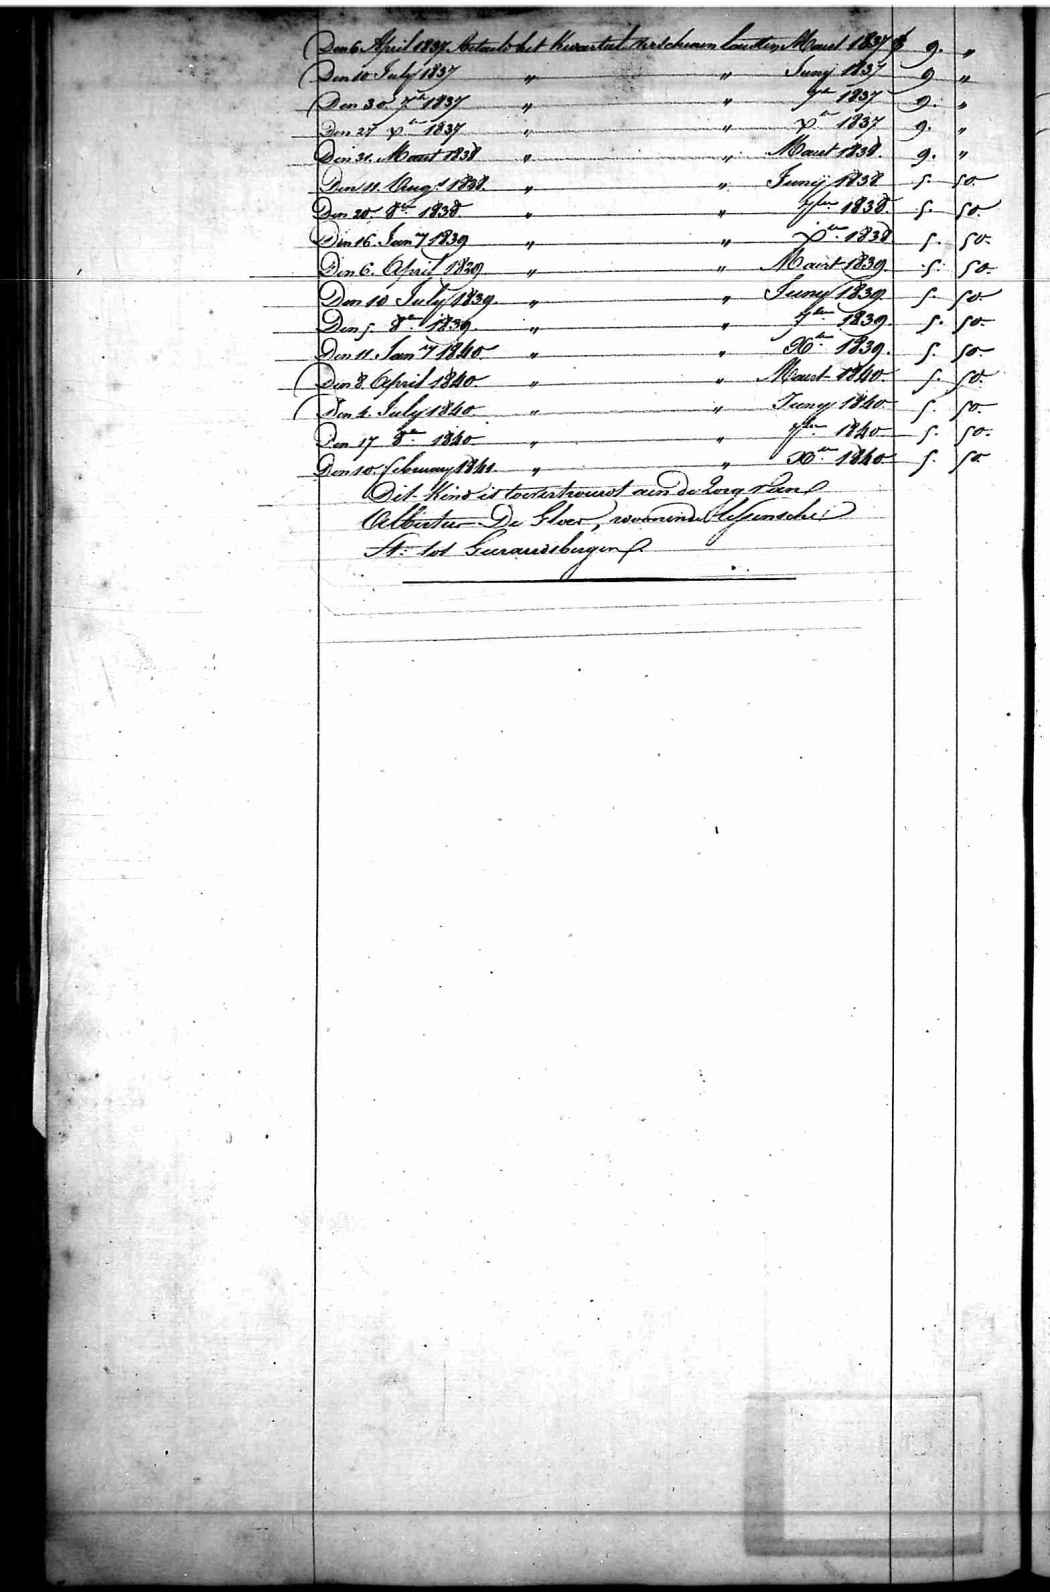 Den 6 April 1837 Betaald het Kwartaal verschenen Maart 1837 f 9. "
Den 10 July 1837 " " Juny 1837 9 "
Den 30 7re 1837 " " 7re 1837 9. "
Den 27 Xre 1837 " " Xre 1837 9. "
Den 31. Maart 1838 " " Maart 1838. 9. "
Den 11. Augt 1838. " " Juny 1838 5. 50.
Den 20. 8re 1838. " " 7bre 1838. 5. 50.
Den 16. Jany 1839 " " Xre 1838 5. 50.
Den 6. April 1839 " " Maart 1839. 5. 50.
Den 10 July 1839. " " Juny 1839. 5. 50
Den 5. 8re 1839. " " 7bre 1839. 5. 50.
Den 11. Jany 1840. " " Xre 1839. 5. 50.
Den 8. April 1840. " " Maart 1840. 5. 50.
Den 4. July 1840 " " Juny 1840. 5. 50.
Den 17 8re 1840. " " 7bre 1840 5. 50.
Den 10. february 1841 " " Xre 1840 5. 50
Dit Kind is toevertrouwt aen de Zorg van
De woonende Lessensche
St: tot Geeraerdsbergen